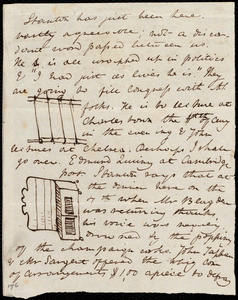 Stanton has just been here.
vastly agreeable; not a discor-
dant word passed between us.
He is all wrapped up in politics
& "I and just as lives he is" They
are going to fill Congress with Ab
folks. He is to lecture at
Charlestown the 4th of Jany
in the evening & John
lectures at Chelsea. Perhaps I shall
go over. Edmund Quincy at Cambridge
port. Stanton says that at
the dinner here on the
when Blagden
was returning thanks,
his voice was
drowned by the popping
of the champaign corks. John Tappan
& Mr Sargent opened the
of arrangements $100 apiece to